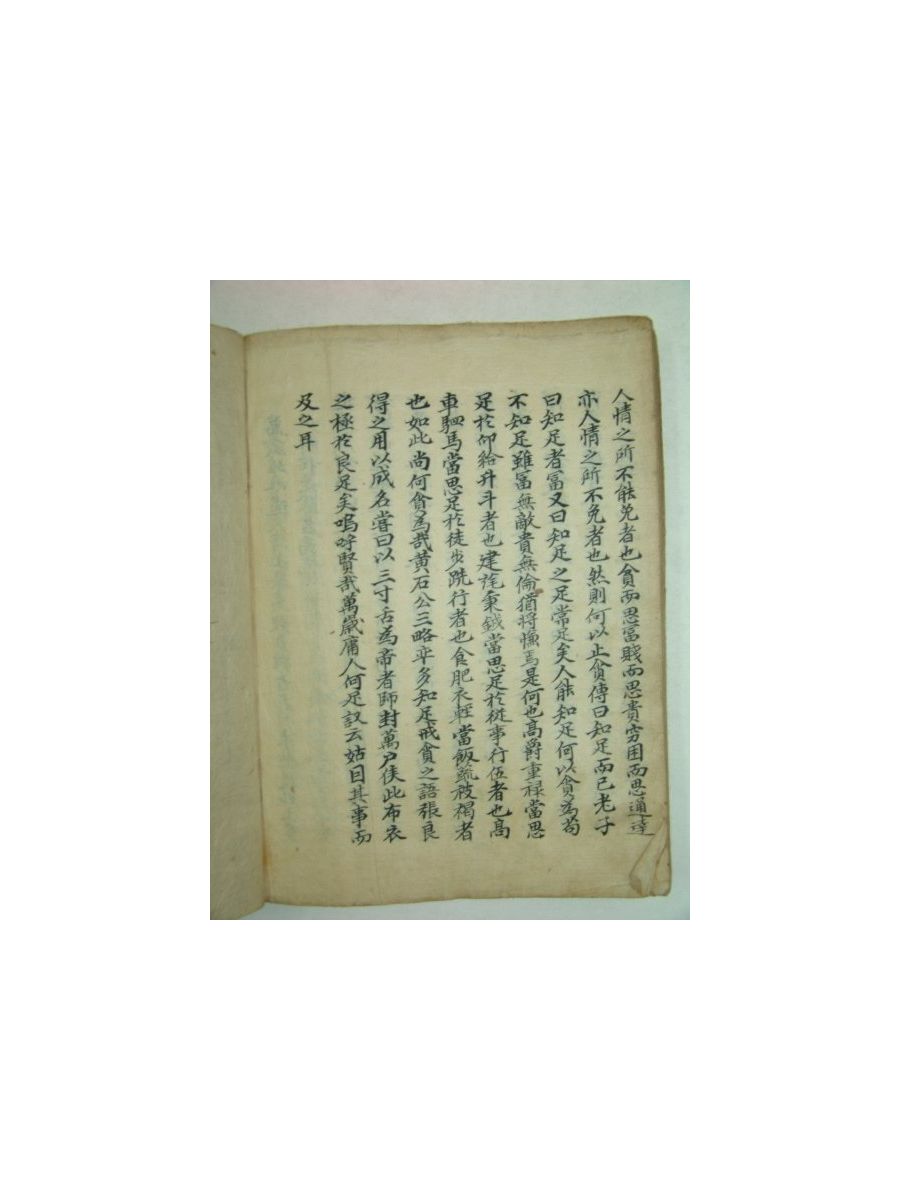 人情之所不能免者也貧而思冨賤而思貴穷困而思通達
亦人情之所不免者也然則何以止貪傳曰知足而已老子
曰知足者冨又曰知足之足常足矣人能知足何以貪為苟
不知足雖冨無敵貴無倫猶將慊焉是何也髙爵重禄當思
足於仰給升斗者也建旄秉鉞當思足於從事行伍者也髙
車駟馬當思足於徒步跣行者也食肥衣輕當飯蔬被褐者
也如此尚何貪為哉黄石公三略率多知足戒貪之語張良
得之用以成名嘗曰以三寸舌為帝者師封萬户侯此布衣
之極於良足矣嗚呼賢哉萬歲庸人何足議云姑因其事而
及之耳